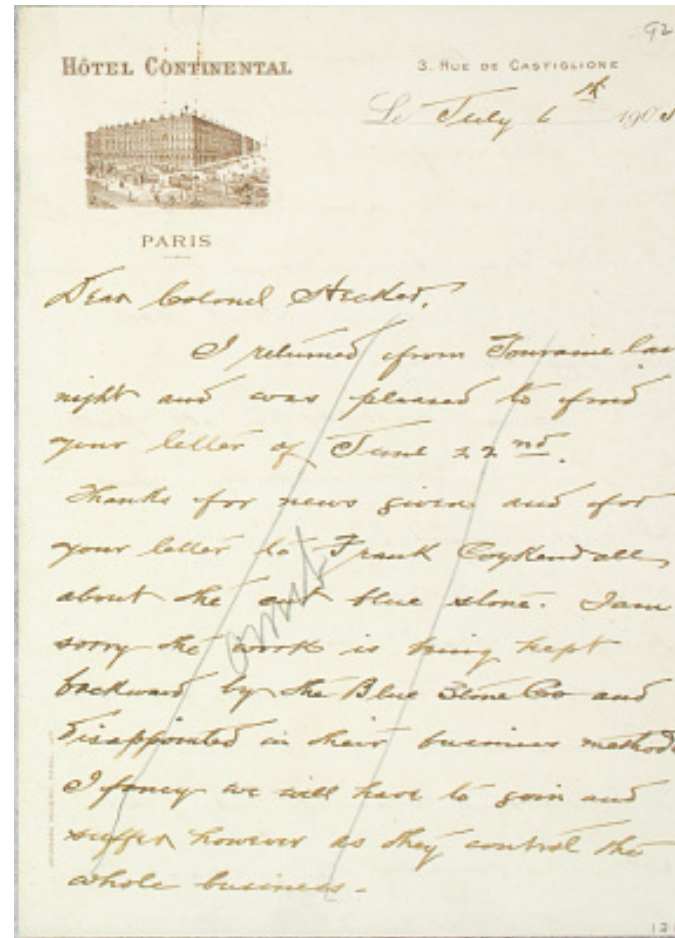 92
HÔTEL CONTINENTAL
3. RUE DE CASTIGLIONE
Le July 6th 190
PARIS
Dear Colonel Hecker,
I returned from Touraine las
night and was pleased to find
your letter of June 22nd.
Thanks for news given and for
your letter to Frank Coykendall
about the cut blue stone. I am
omit
sorry the work is being kept
backward by the Blue Stone Co and
disappointed in their business methods
I fancy we will have to grin and
suffer however as they control the
whole business.